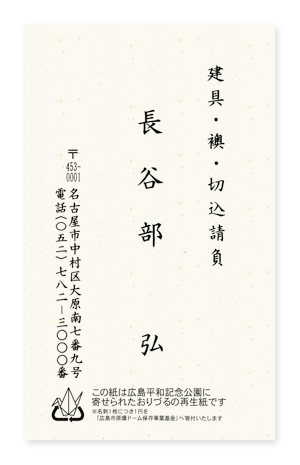 建具・襖・切込請負
長谷部 弘
〒453-0001
名古屋市中村区大原南七番九号
電話(〇五二)七八二ー三〇〇〇番
この紙は広島平和記念公園に
寄せられたおりづるの再生紙です
※名刺1枚につき1円を
「広島市原爆ドーム保存事業基金」へ寄付いたします